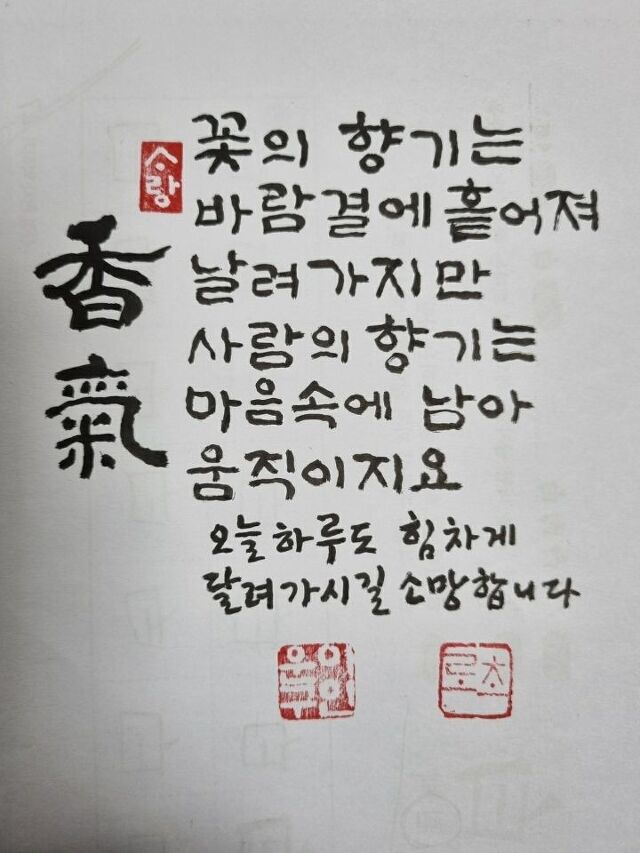 香氣
사랑
꽃의 향기는
바람결에 흩어져
날려가지만
사람의 향기는
마음속에 남아
움직이지요
오늘하루도 힘차게
달려가시길 소망합니다